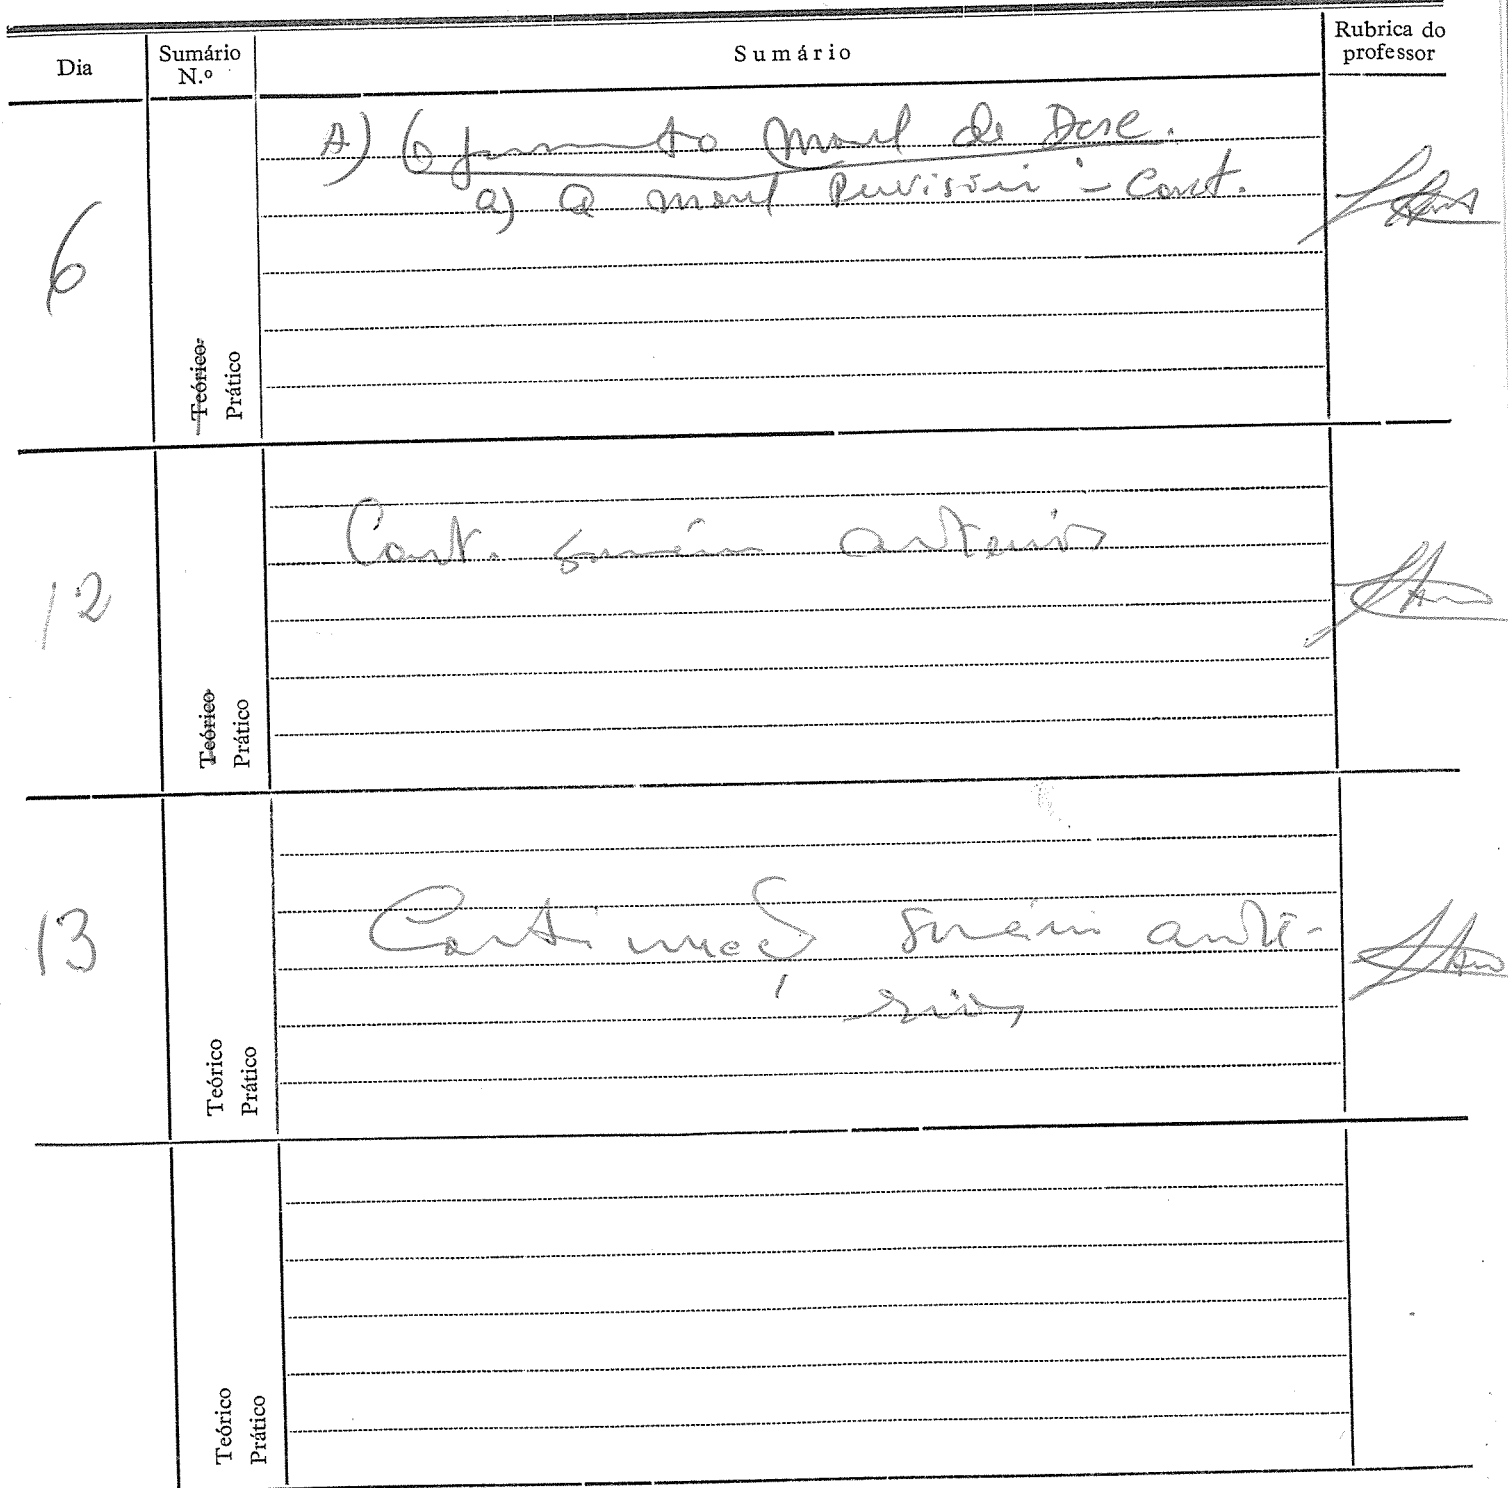 Dia
Sumário N.º
Sumário
Rubrica do professor
6
Teórico
Prático
A) O moral de
a) a moral Provisória - Cont.
12
Teórico
Prático
Cont. sumário anterior
13
Teórico
Prático
Continuação sumário ante-
rior
Teórico
Prático